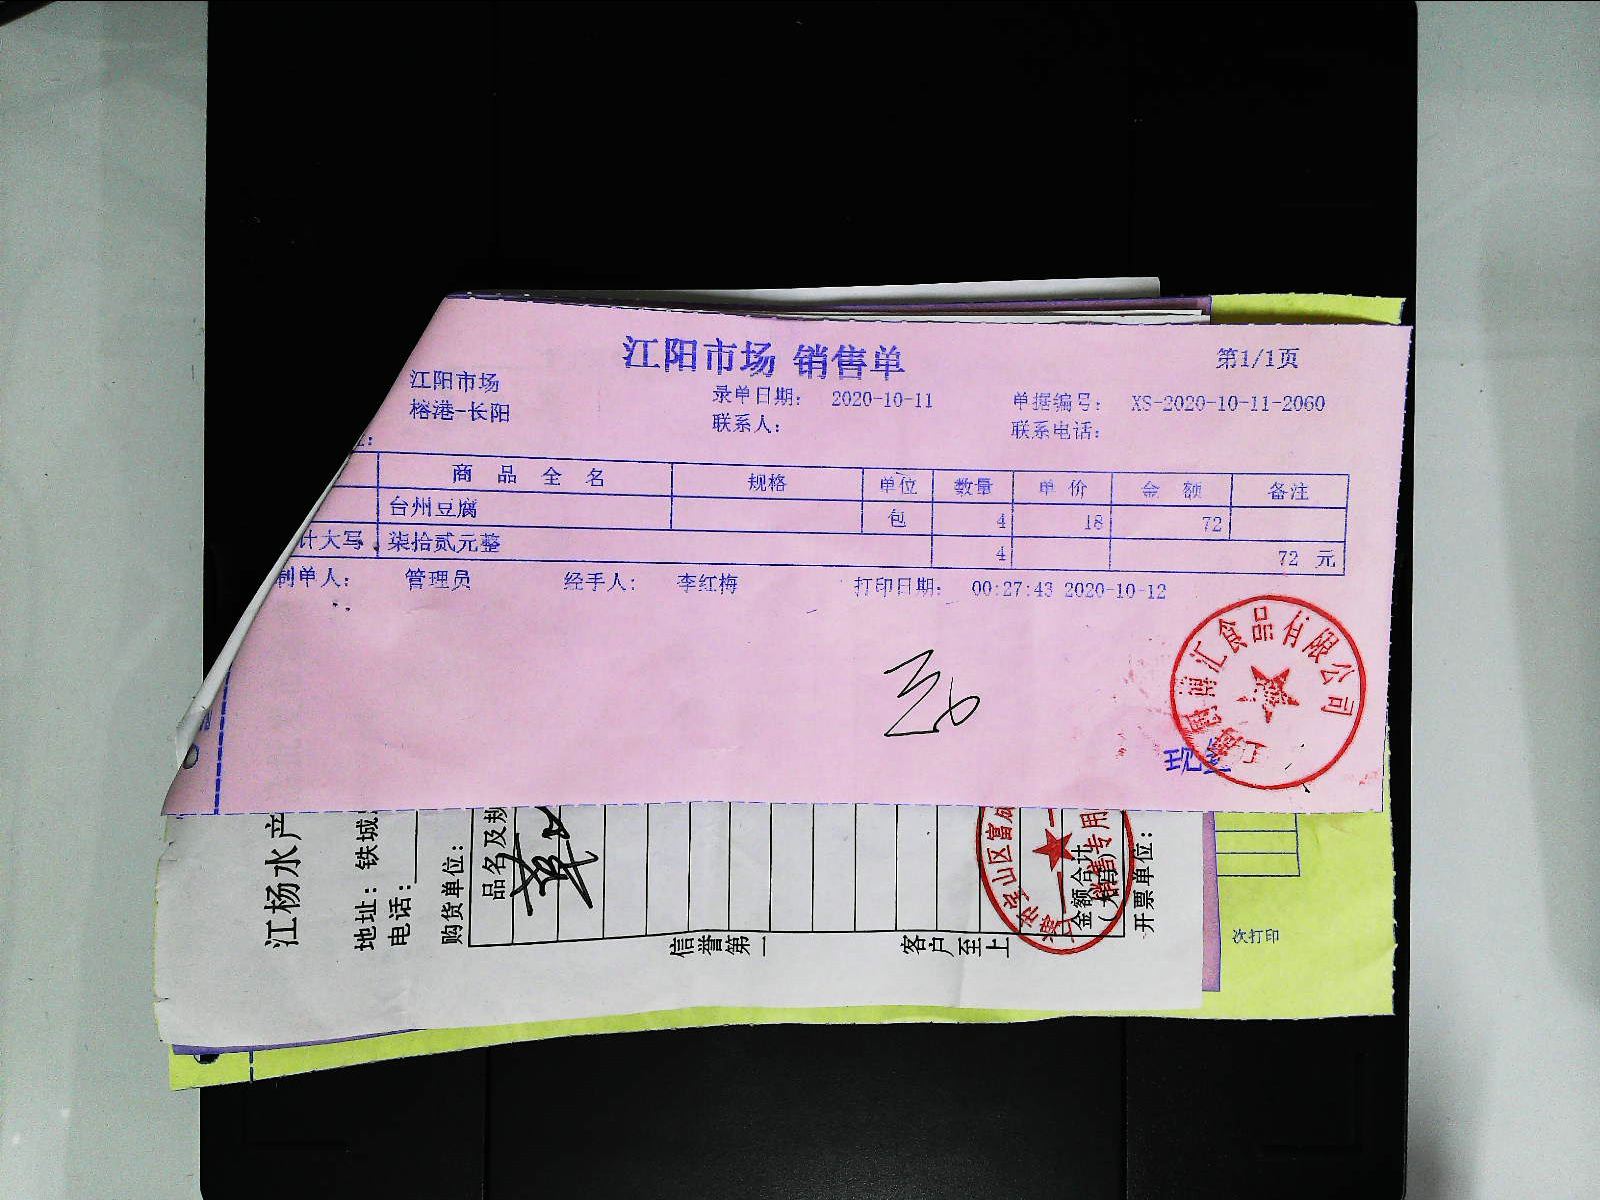 江阳市场 销售单
第1/1页
江阳市场
录单日期: 2020-10-11
单据编号: XS-2020-10-11-2060
榕港-长阳
联系人:
联系电话:
商品全名 规格 单位 数量 单价 金额 备注
台州豆腐 包 4 18 72
计大写 柒拾贰元整 4 72 元
制单人: 管理员 经手人: 李红梅 打印日期: 00:27:43 2020-10-12
汇食品有限公司
上海
江杨水产
地址: 铁城
电话:
购货单位:
品名及规
信誉第一
客户至上
山区富
销售专用
金额合计
开票单位:
次打印